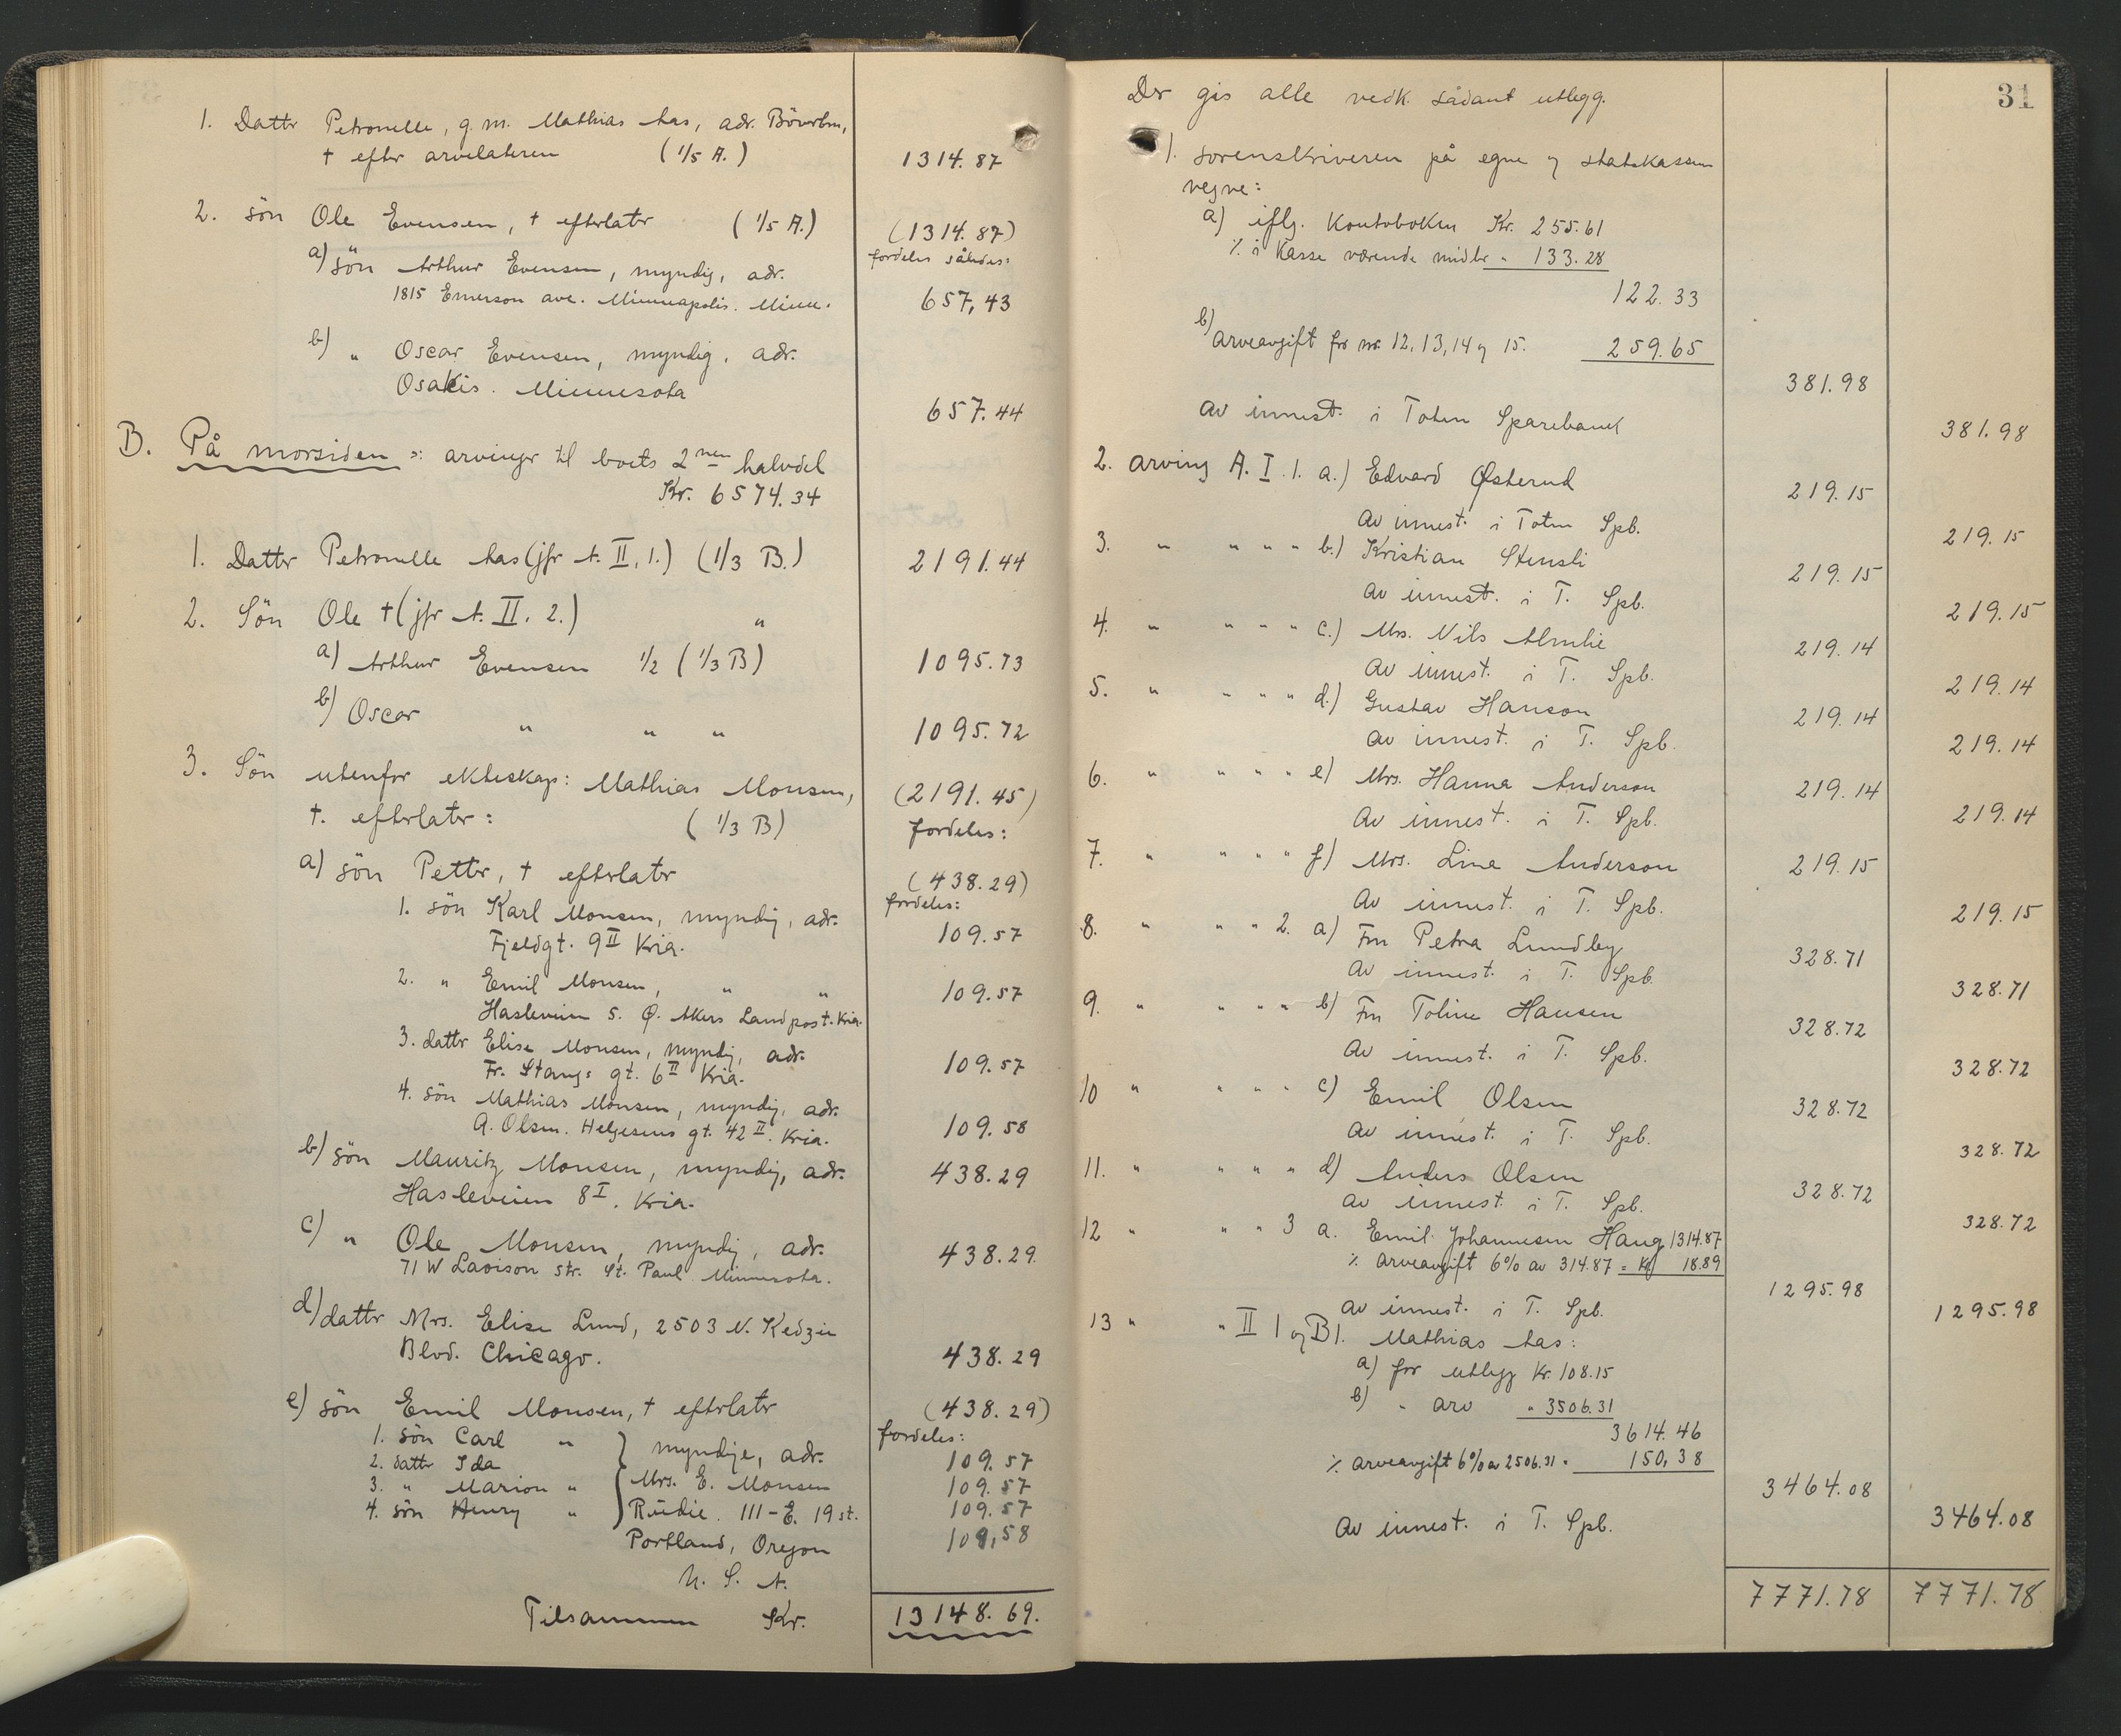 1. Datter Petronelle, g.m. Mathias Aas, adr. Böverbru,
† efter arvelateren (1/5 A.) 1314.87
2. sön Ole Evensen, † efterlater (1/5 A.) (1314.87)
fordeles således:
a) sön Arthur Evensen, myndig, adr.
1815 Emerson ave. Minneapolis. Minn. 657,43
b) " Oscar Evensen, myndig, adr.
Osakis. Minnesota 657.44
B. På morsiden ɔ: arvinger til boets 2nen halvdel
Kr. 6574.34
1. Datter Petronelle Aas (jfr A. II, 1.) (1/3 B.) 2191.44
2. Sön Ole † (jfr A. II. 2.) "
a) Arthur Evensen 1/2 (1/3 B) 1095.73
b) Oscar " " " 1095.72
3. Sön utenfor ekteskap: Mathias Monsen, (2191.45)
†. efterlater: (1/3 B) fordeles:
a) sön Petter, † efterlater (438.29)
fordeles:
1. sön Karl Monsen, myndig, adr.
Fjeldgt. 9 II Kria. 109.57
2. " Emil Monsen, " " 109.57
Hasleveien 5. Ø. Akers Landpost. Kria.
3. datter Elise Monsen, myndig, adr.
Fr. Stangs gt. 6 II Kria. 109.57
4. sön Mathias Monsen, myndig, adr.
A. Olsen. Helgesens gt. 42 II. Kria. 109.58
b) sön Mauritz Monsen, myndig, adr. 438.29
Hasleveien 8 I. Kria.
c) " Ole Monsen, myndig, adr. 438.29.
71 W Lavison str. St. Paul Minnesota.
d) datter Mrs. Elise Lund, 2503 N. Kedzie
Blvd. Chicago. 438.29
e) sön Emil Monsen, † efterlater (438.29)
fordeles:
1. sön Carl " myndige, adr. 109.57
2. datter Ida
3. " Marion " Mrs. E. Monsen 109.57
4. sön Henry " Rudie. 111-E. 19 st. 109.57
Portland, Oregon 109,58
U. S. A.
Tilsammen Kr. 13148.69.
31
Der gis alle vedk. sådant utlegg.
1. sorenskriveren på egne og statskassens
vegne:
a) iflg. Kontoboken Kr. 255.61
% i Kasse værende midler " 133.28
122.33
b) arveavgift for nr. 12, 13, 14 og 15. 259.65
381.98
av innest. i Toten Sparebank 381.98
2. arving A. I. 1. a.) Edvard Østerud 219.15
Av innest. i Toten Spb. 219.15
3. " " " " b.) Kristian Stensli 219.15
av innest. i T. Spb. 219.15
4. " " " " c.) Mrs. Nils Almlie 219.14
av innest. i T. Spb. 219.14
5. " " " " d.) Gustav Hanson 219.14
av innest. i T. Spb. 219.14
6. " " " " e) Mrs. Hanna Anderson 219.14
Av innest. i T. Spb. 219.14
7. " " " " f) Mrs. Line Anderson 219.15
Av innest. i T. Spb. 219.15
8. " " " 2. a) Fru Petra Lundby 328.71
Av innest. i T. Spb. 328.71
9. " " " " b) Fru Toline Hansen 328.72
Av innest. i T. Spb. 328.72
10 " " " " c) Emil Olsen 328.72
Av innest. i T. Spb. 328.72
11. " " " " d) Anders Olsen 328.72
Av innest. i T. Spb. 328.72
12 " " " 3 a. Emil Johannesen Haug 1314.87
% arveavgift 6% av 314.87 = Kr 18.89
1295.98
av innest. i T. Spb. 1295.98
13 " " II 1 og B 1. Mathias Aas:
a) for utlegg Kr. 108.15
b) " arv " 3506.31
3614.46
% arveavgift 6% av 2506.31 " 150,38
3464.08
Av innest. i T. Spb. 3464.08
7771.78 7771.78